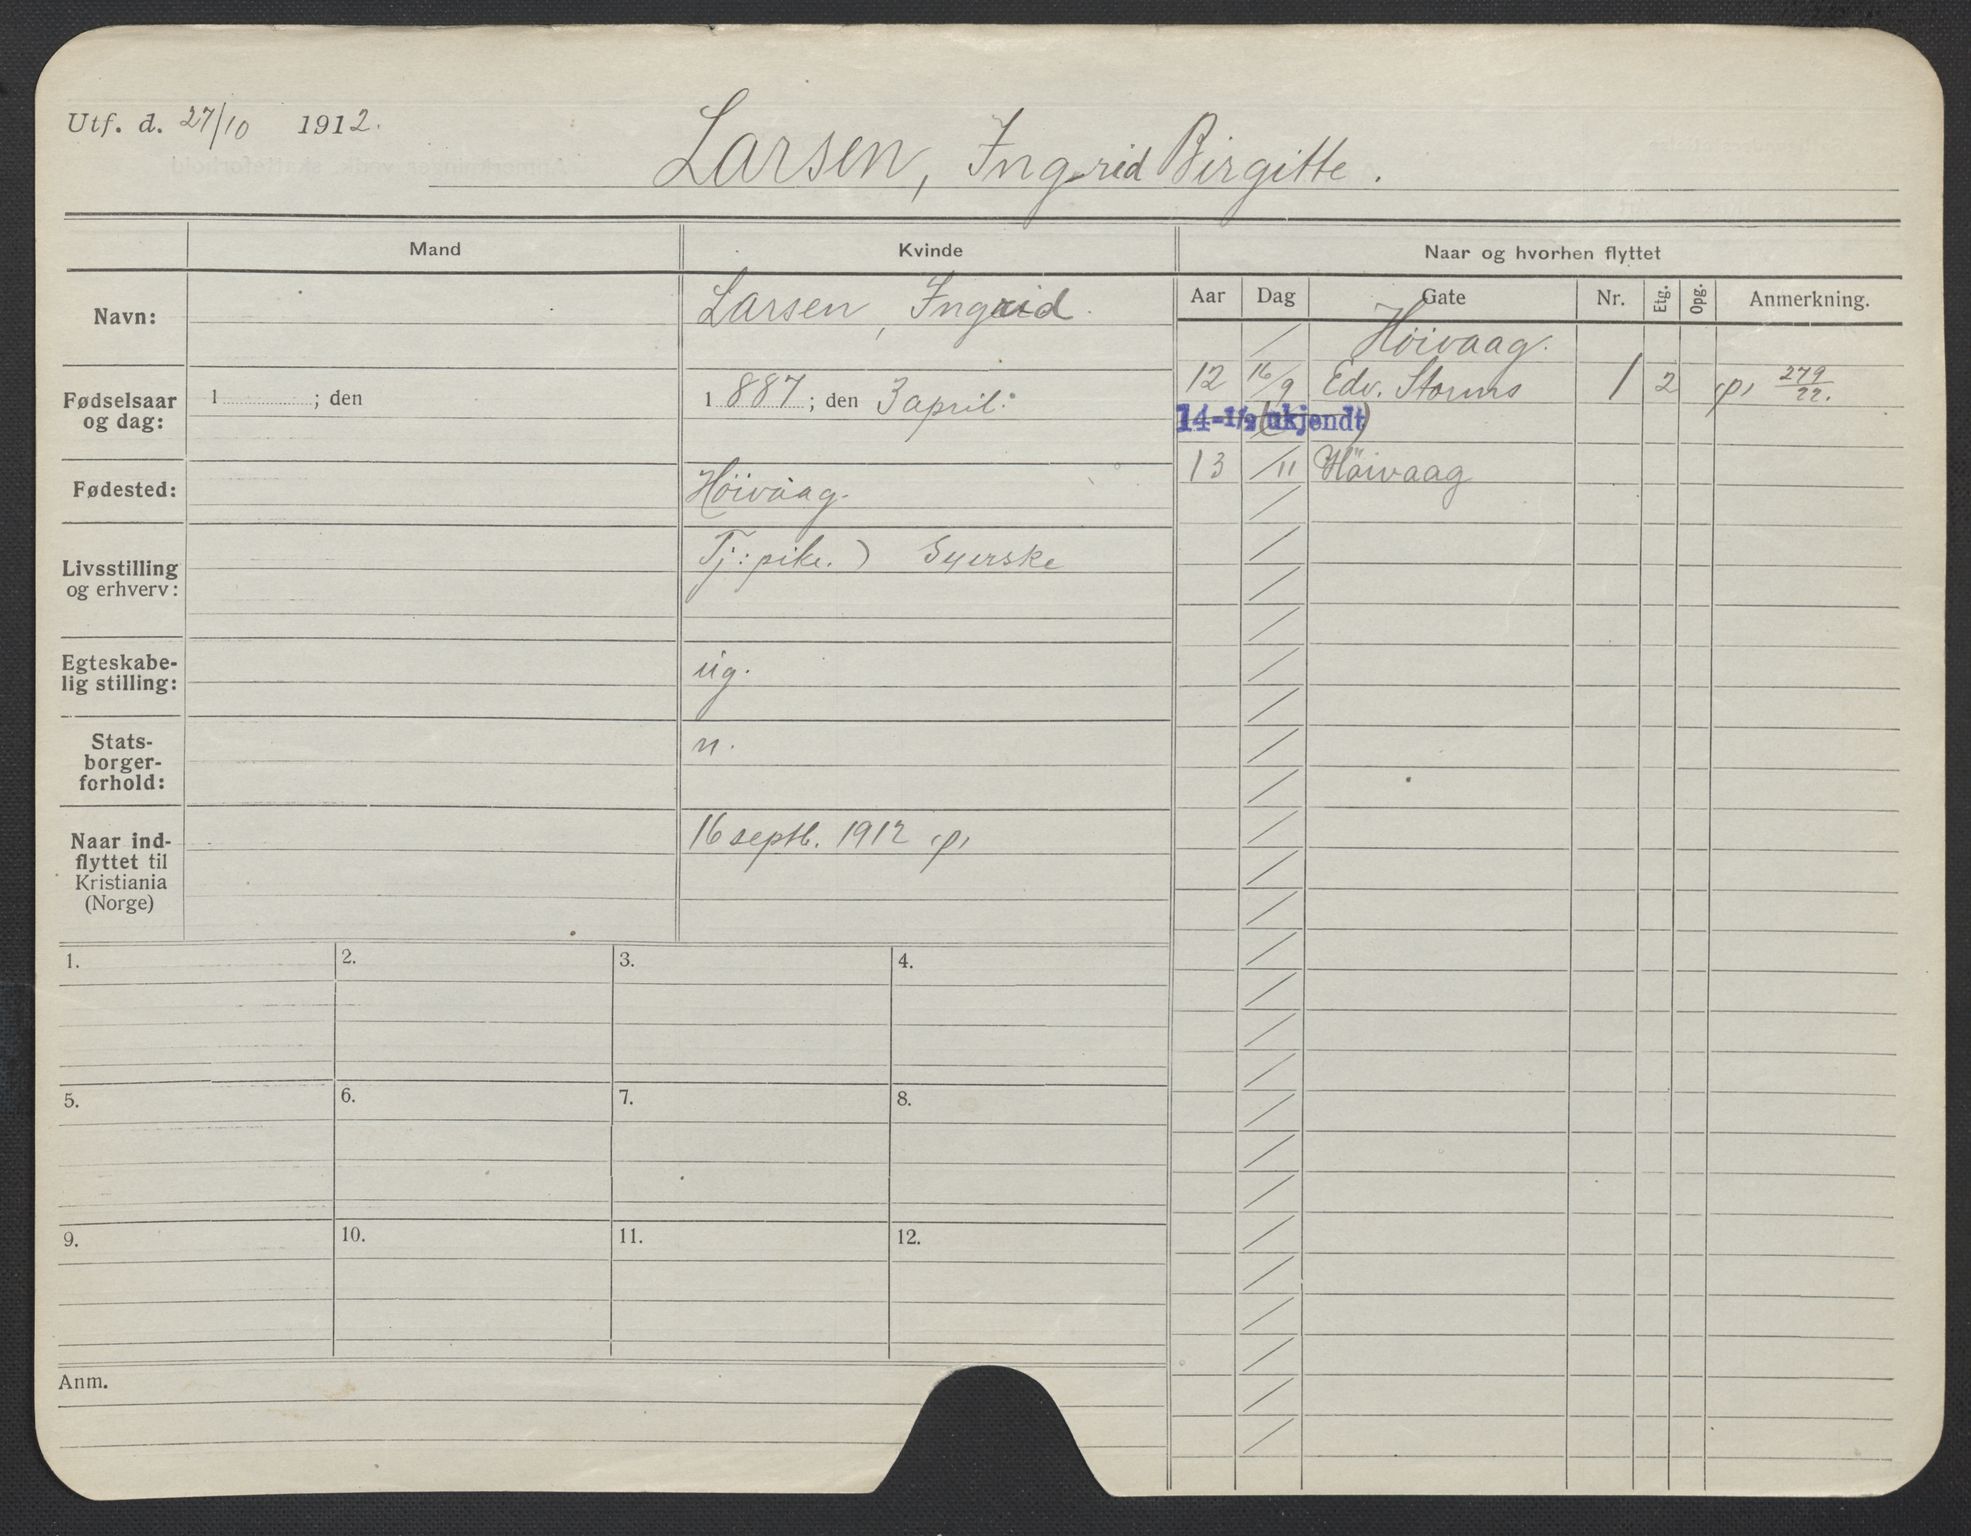 Utf. d. 27/10 1912.
Larsen, Ingrid Birgitte.
Mand
Kvinde
Naar og hvorhen flyttet
Navn:
Larsen, Ingrid.
Fødselsaar og dag:
1 ; den
1887; den 3 april.
Fødested:
Höivaag.
Livsstilling og erhverv:
Tj: pike.) Syerske
Egteskabe-
lig stilling:
ug.
Stats-
borger-
forhold:
n.
Naar ind-
flyttet til
Kristiania
(Norge)
16 septb. 1912 p,
Aar Dag Gate Nr. Etg. Opg. Anmerkning.
/ Höivaag.
12 16/9 Edv. Storms 1 2 p, 279/22.
14-1/2 (ukjendt)
13 /11 Höivaag
1. 2. 3. 4.
5. 6. 7. 8.
9. 10. 11. 12.
Anm.